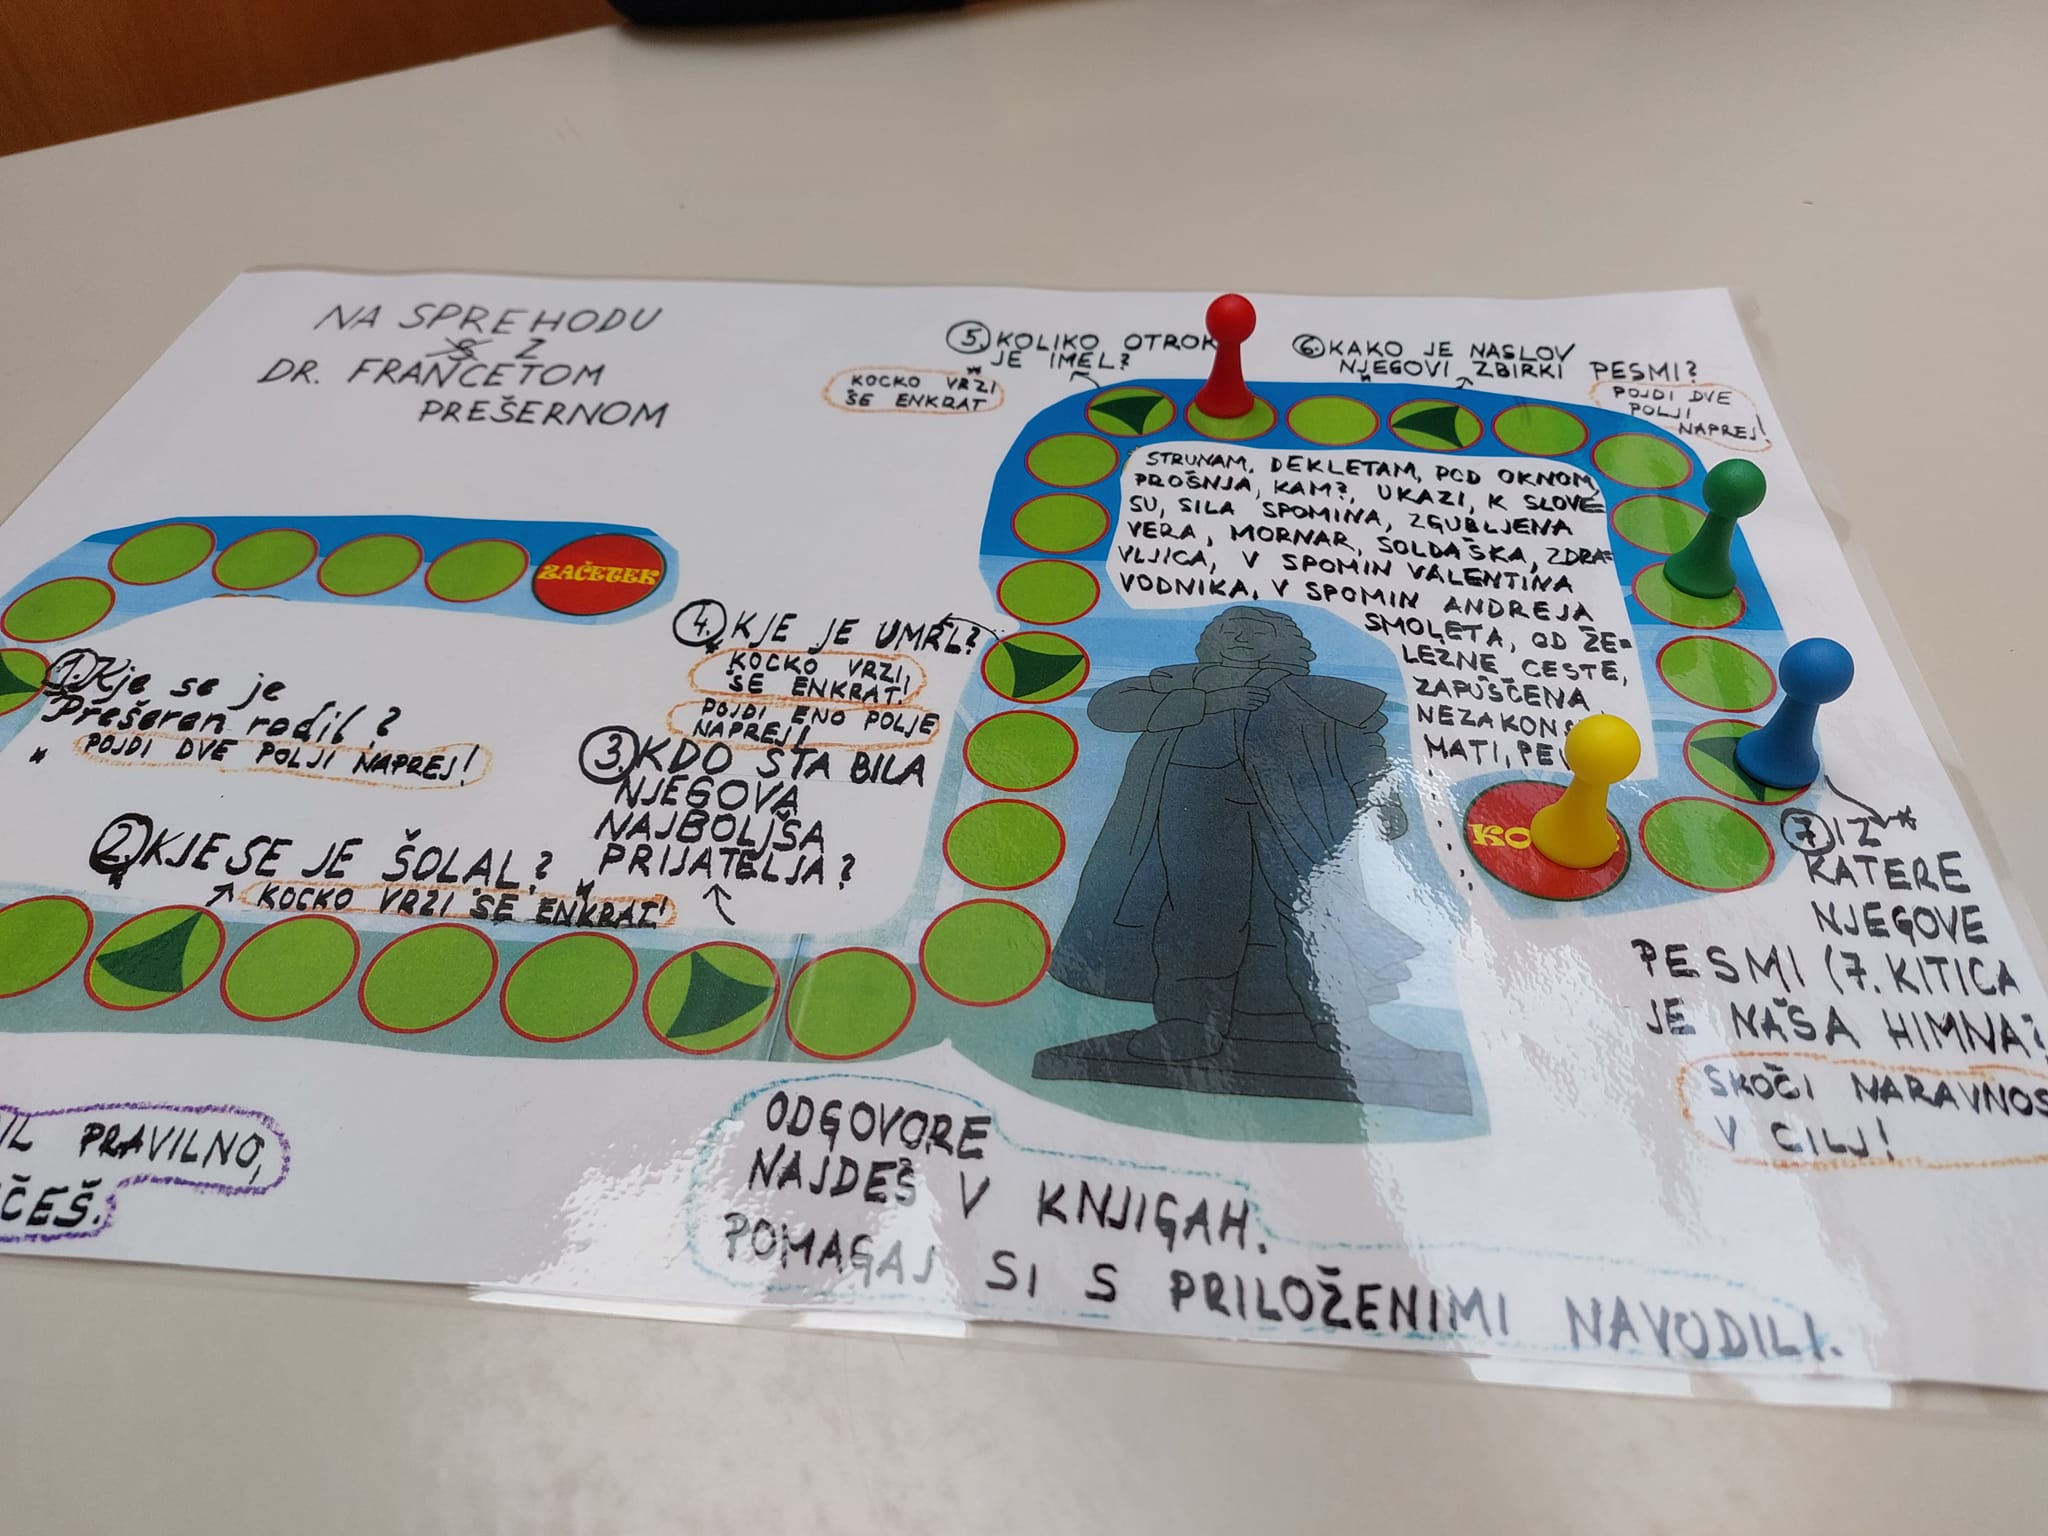 NA SPREHODU
S Z
DR. FRANCETOM
PREŠERNOM
ZAČETEK
1. Kje se je
Prešeren rodil?
* POJDI DVE POLJI NAPREJ!
2. KJE SE JE ŠOLAL?
* KOCKO VRZI ŠE ENKRAT!
3. KDO STA BILA
NJEGOVA
NAJBOLJŠA
PRIJATELJA?
* POJDI ENO POLJE
NAPREJ!
4. KJE JE UMRL?
* KOCKO VRZI,
ŠE ENKRAT!
5. KOLIKO OTROK
JE IMEL?
* KOCKO VRZI
ŠE ENKRAT
6. KAKO JE NASLOV
NJEGOVI ZBIRKI PESMI?
* POJDI DVE
POLJI
NAPREJ!
STRUNAM, DEKLETAM, POD OKNOM,
PROŠNJA, KAM?, UKAZI, K SLOVE=
SU, SILA SPOMINA, ZGUBLJENA
VERA, MORNAR, SOLDAŠKA, ZDRA=
VLJICA, V SPOMIN VALENTINA
VODNIKA, V SPOMIN ANDREJA
SMOLETA, OD ŽE=
LEZNE CESTE,
ZAPUŠČENA,
NEZAKONS
MATI, PE
KO
7. IZ *
KATERE
NJEGOVE
PESMI (7. KITICA
JE NAŠA HIMNA?
SKOČI NARAVNOS
V CILJ!
IL PRAVILNO,
ČEŠ.
ODGOVORE
NAJDEŠ V KNJIGAH.
POMAGAJ SI S PRILOŽENIMI NAVODILI.